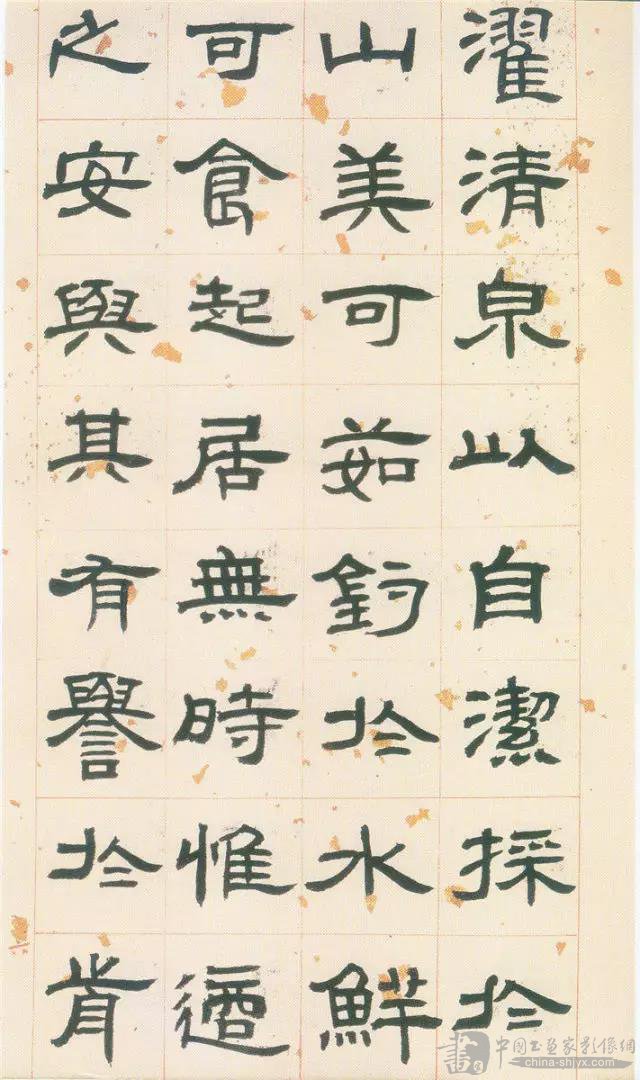 濯清泉以自潔採於
山美可茹釣於水鮮
可食起居無時惟適
之安與其有譽於前
書 中國书画家影像網
china-shjyx.com